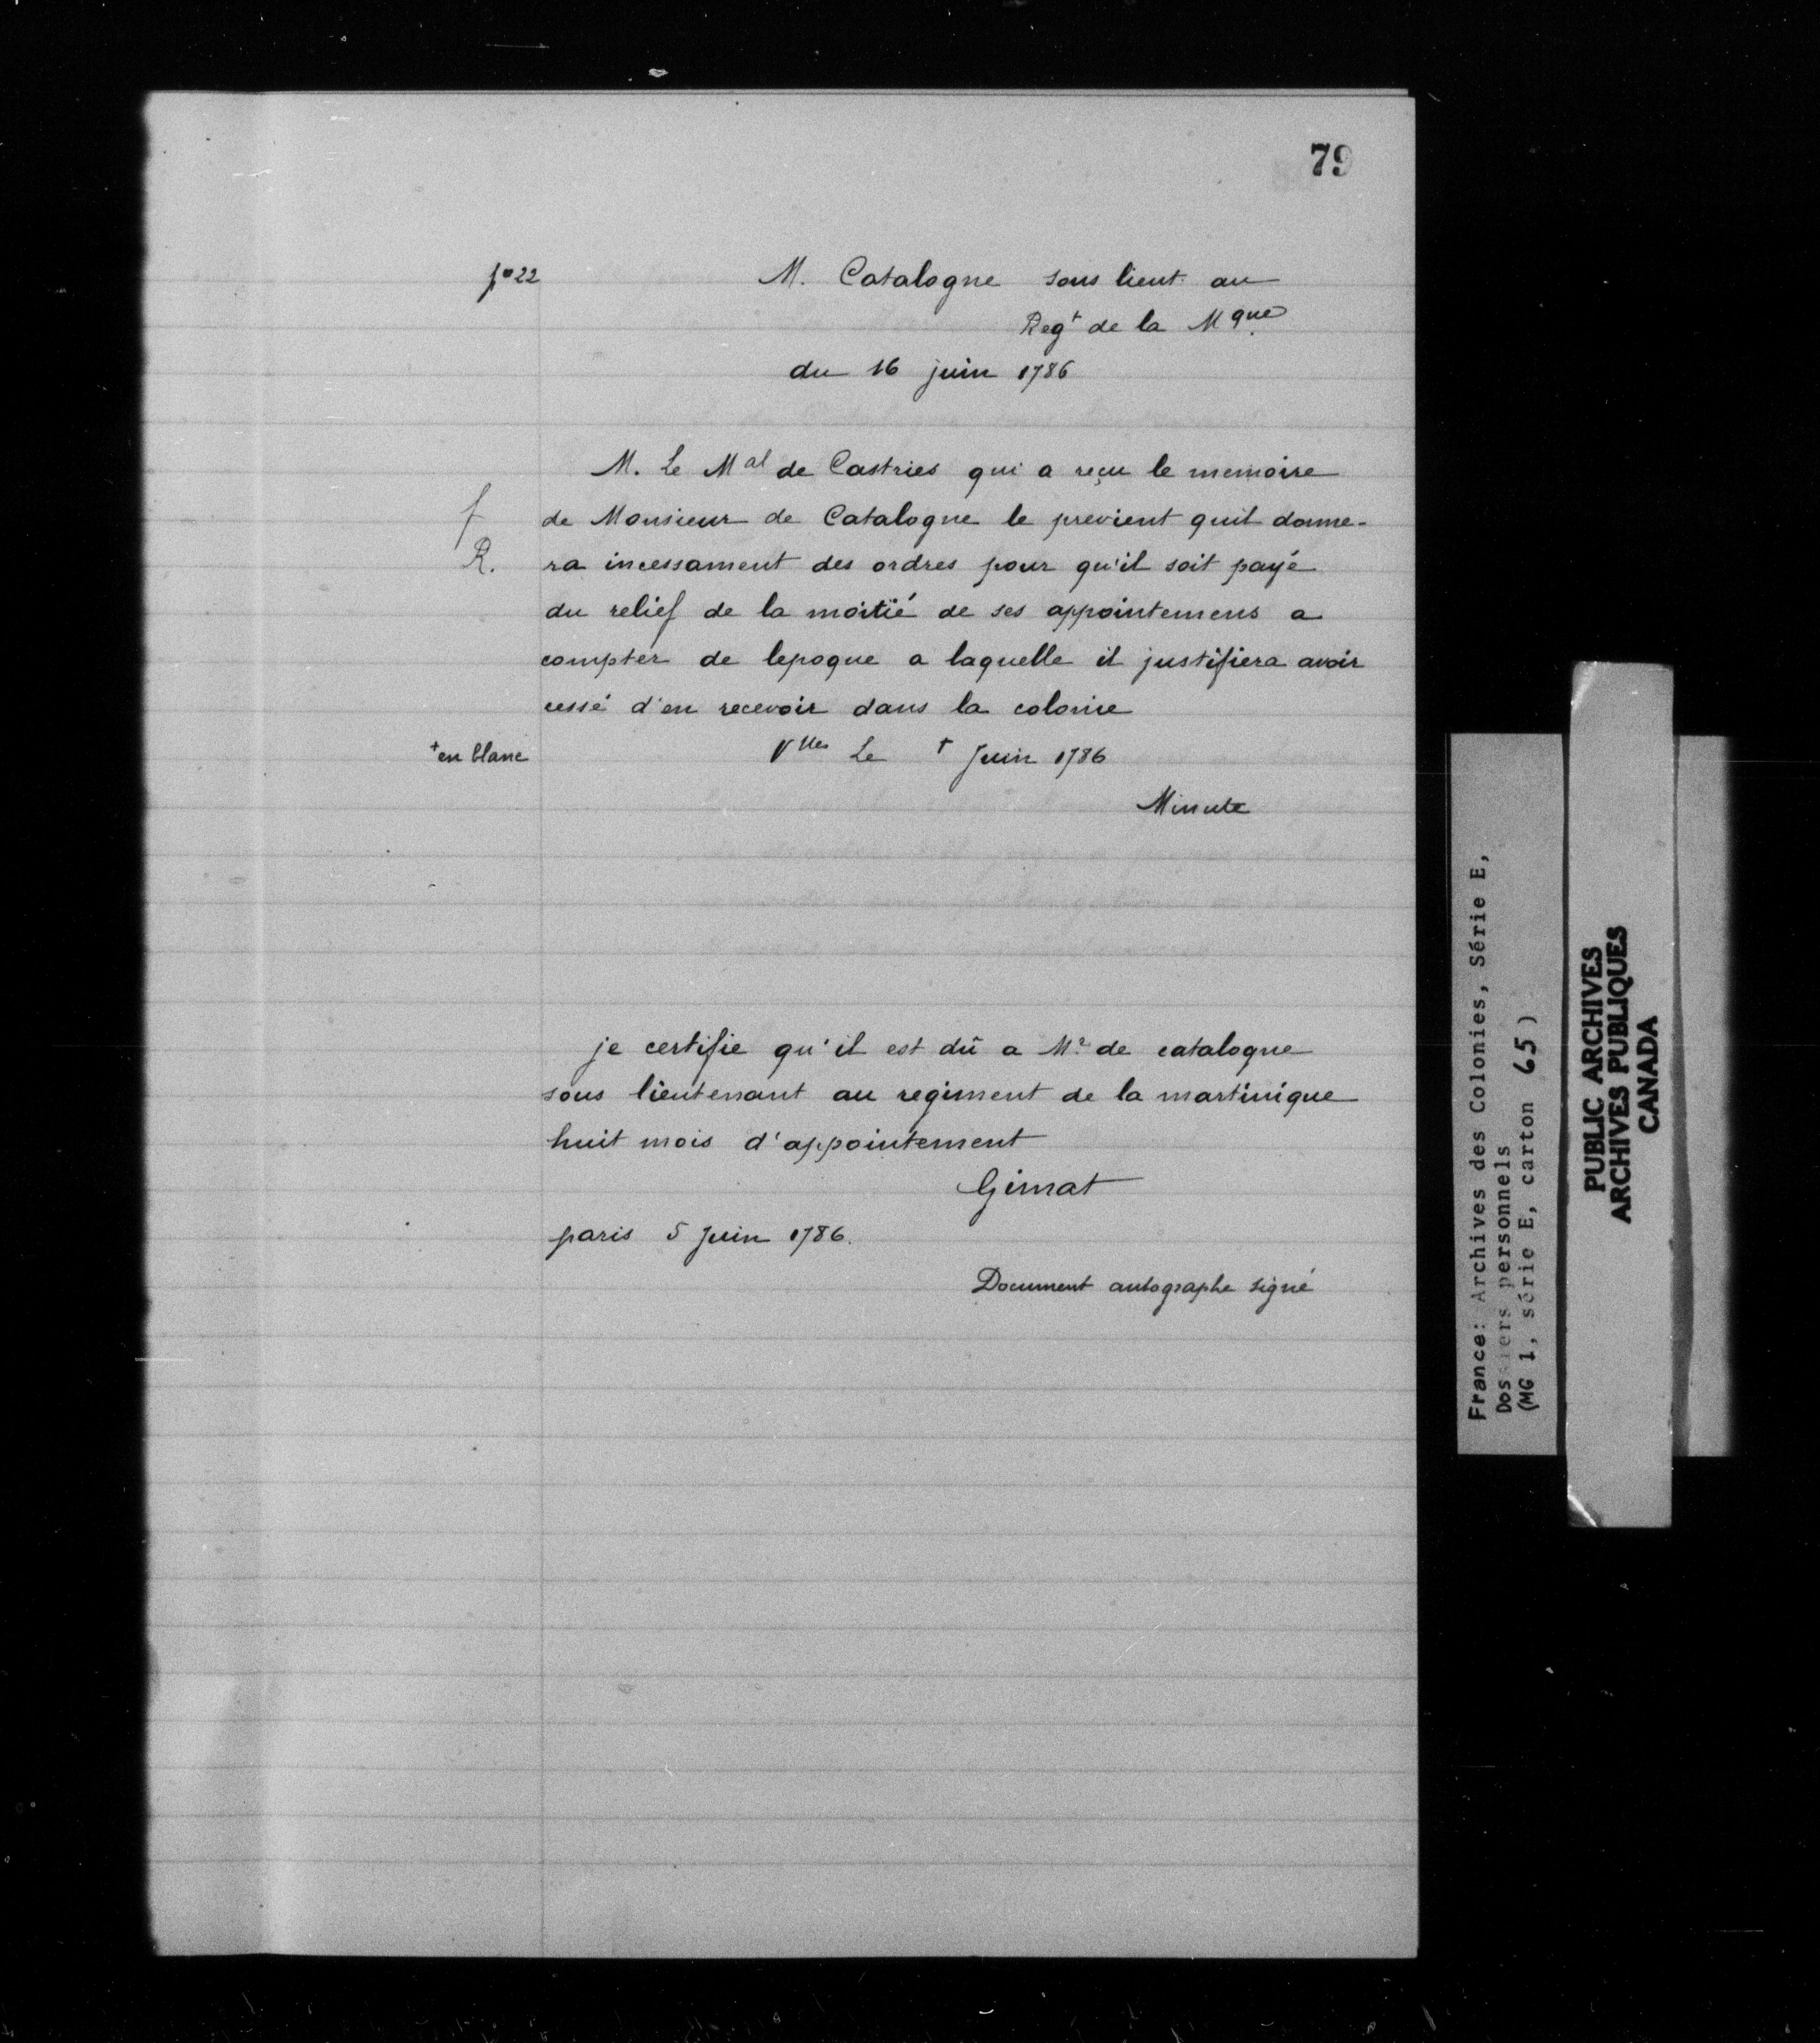 79
fo 22
M. Catalogne sous lieut. au
Regt de la Mque
du 16 juin 1786
M. Le Mal de Castries qui a reçu le memoire
f
de Monsieur de Catalogne le previent quil donne-
R.
ra incessament des ordres pour qu'il soit payé
du relief de la moitié de ses appointemens a
compter de lepoque a laquelle il justifiera avoir
cessé d'en recevoir dans la colonie
+ en blanc
Vlles Le + Juin 1786
Minute
je certifie qu'il est dû a Mr. de catalogne
sous lieutenant au regiment de la martinique
huit mois d'appointement
Gimat
paris 5 Juin 1786.
Document autographe signé
France: Archives des Colonies, Série E,
Dossiers personnels
(MG 1, série E, carton 65)
PUBLIC ARCHIVES
ARCHIVES PUBLIQUES
CANADA